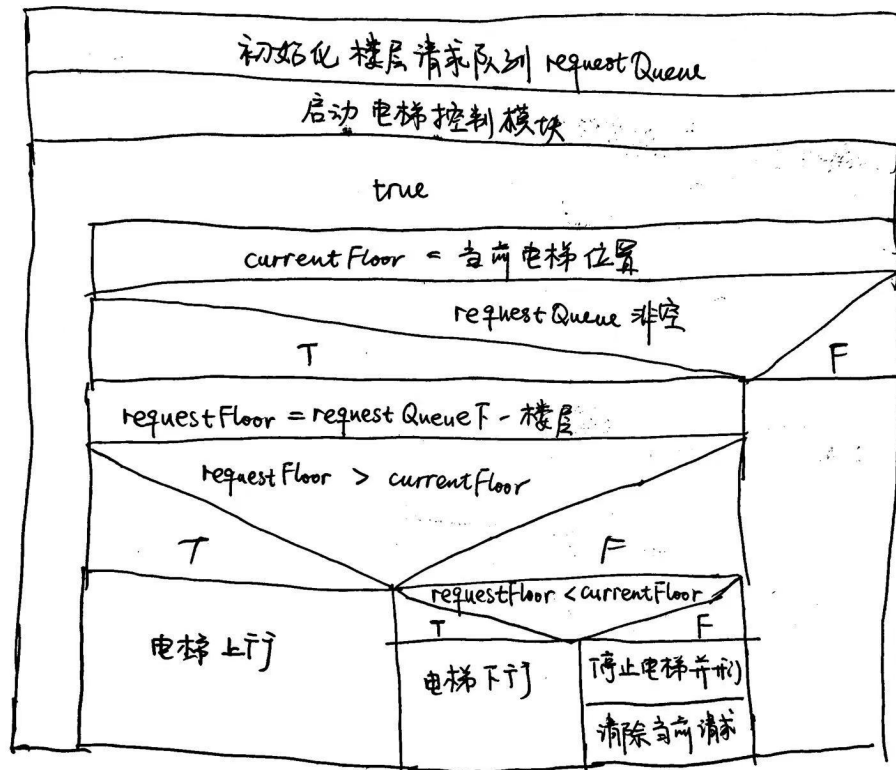 初始化楼层请求队列 requestQueue
启动电梯控制模块
true
currentFloor = 当前电梯位置
requestQueue 非空
T F
requestFloor = requestQueue下一楼层
requestFloor > currentFloor
T F
requestFloor < currentFloor
T F
电梯上行
电梯下行
停止电梯并开门
清除当前请求